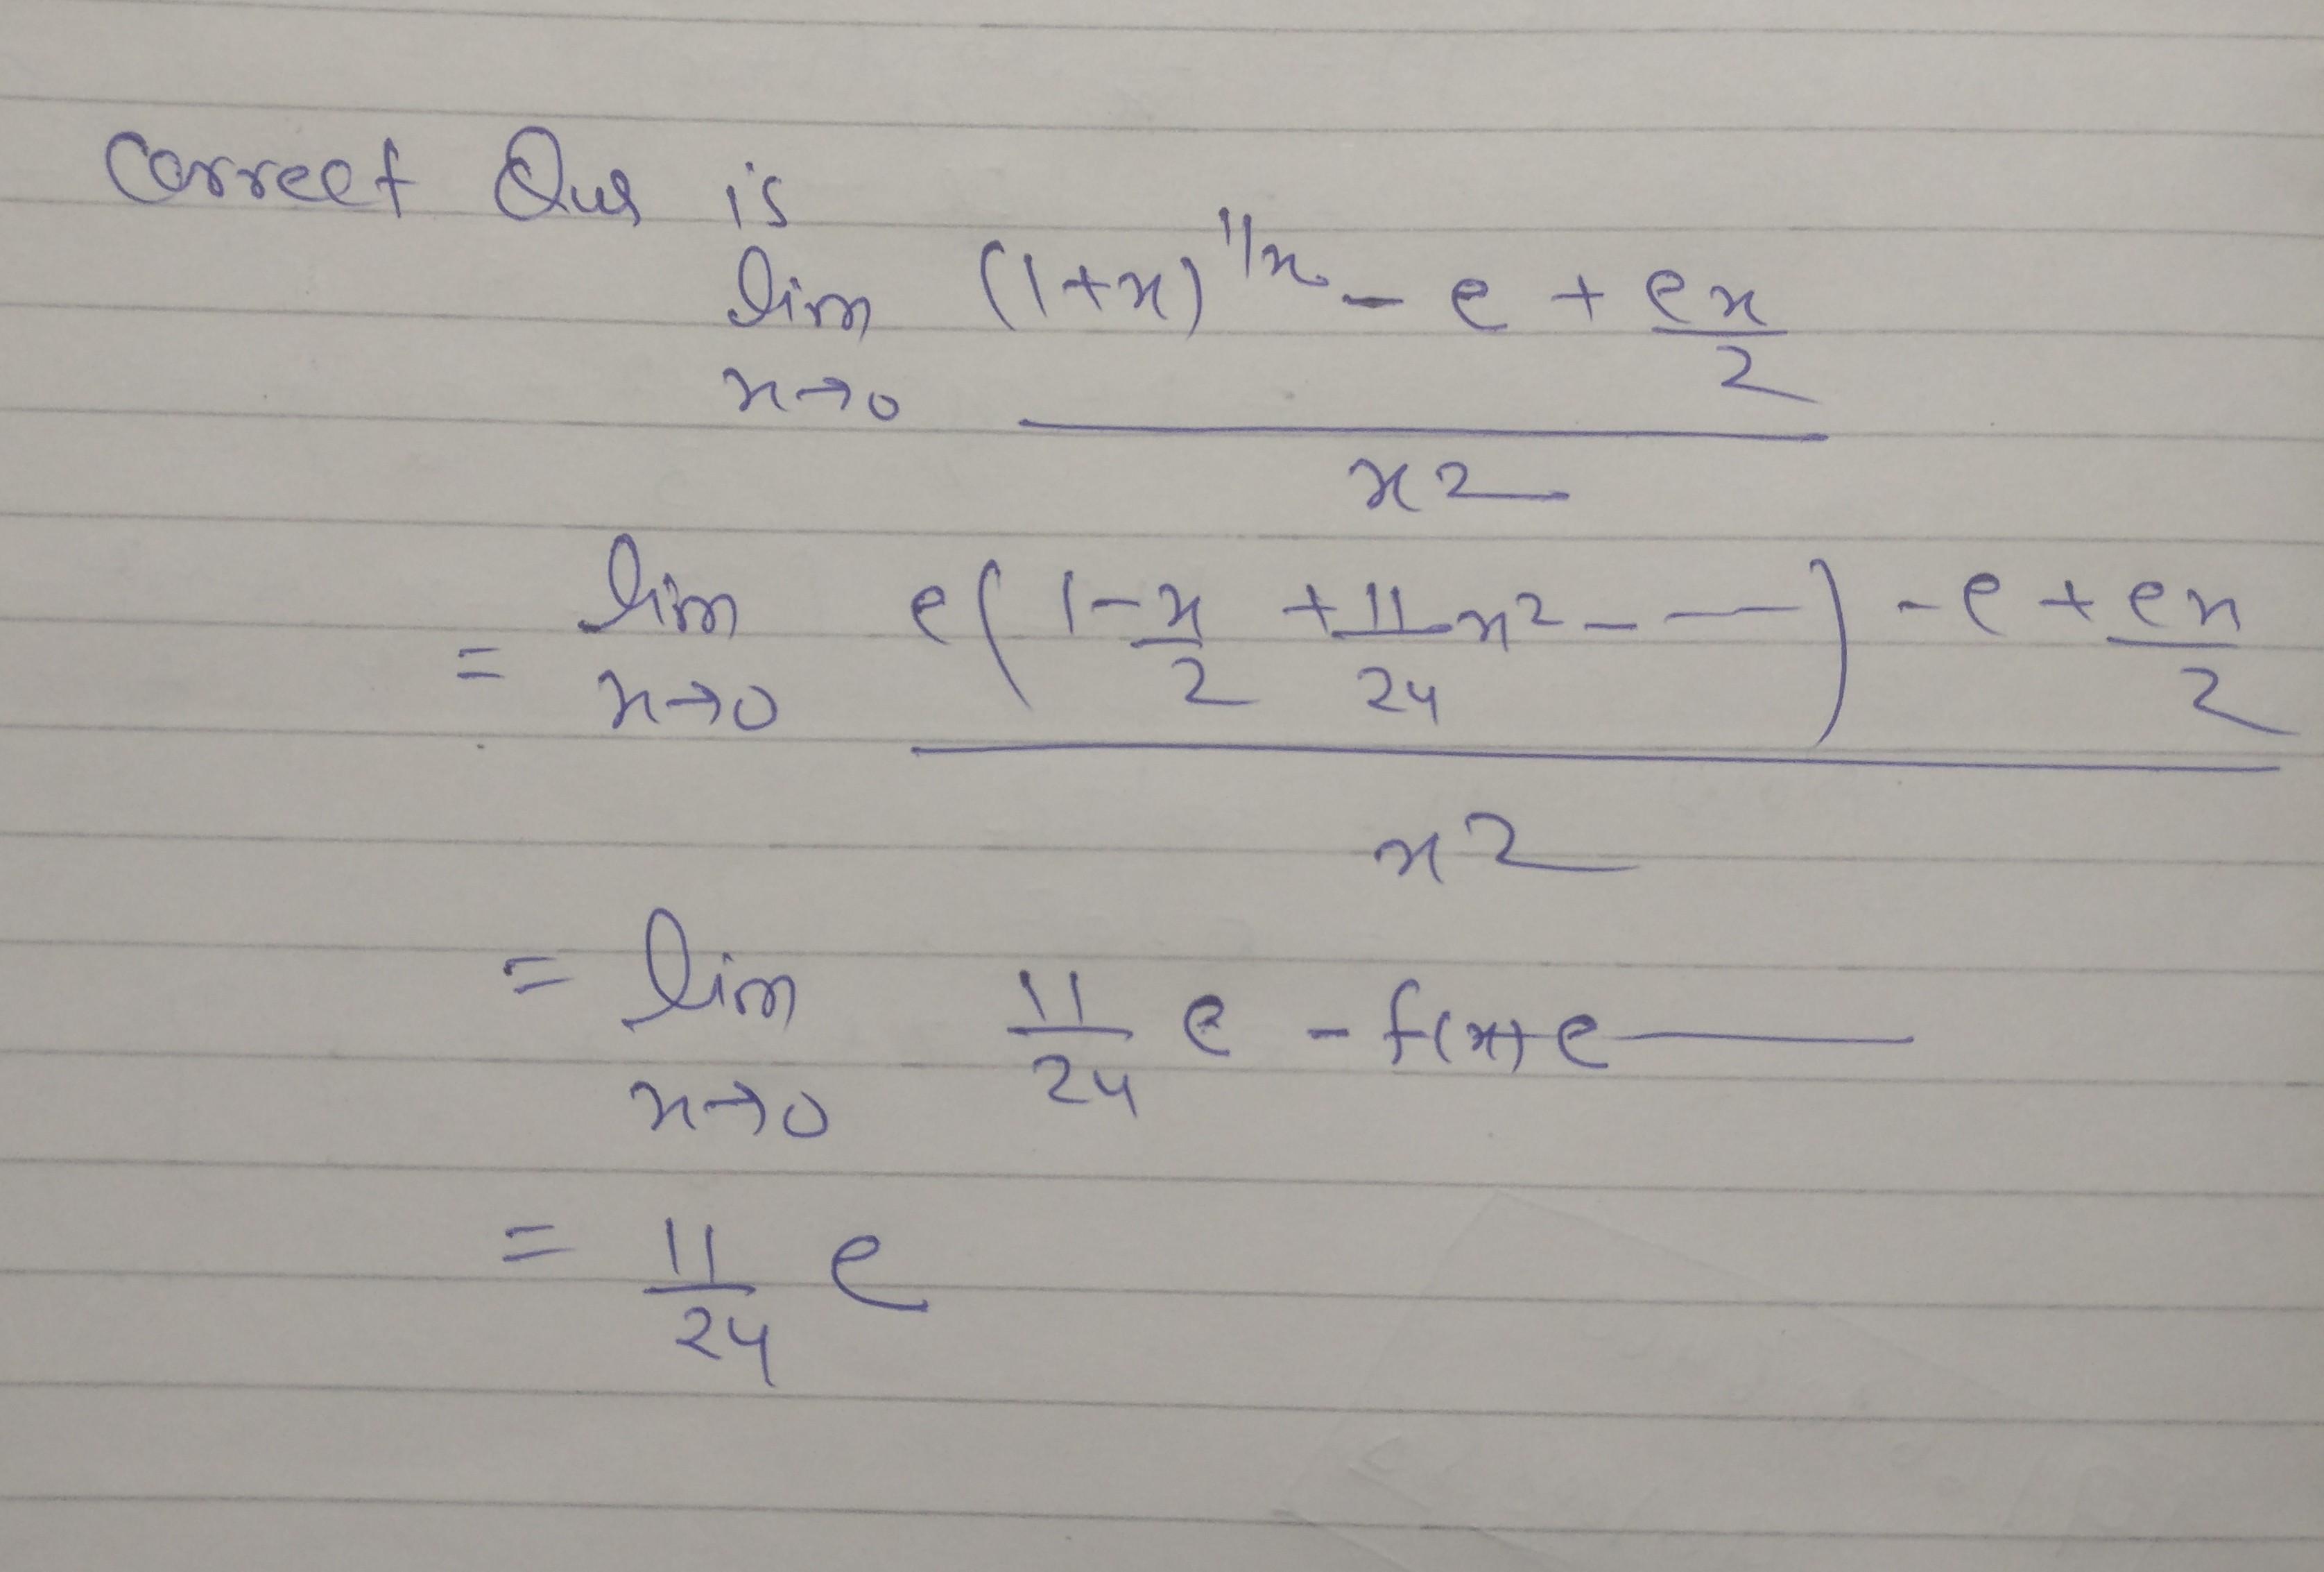 Correct Ques is
lim x→0 ((1+x)^{1/x} - e + ex/2) / x²
= lim x→0 (e(1 - x/2 + 11/24 x² - —) - e + ex/2) / x²
= lim x→0 11/24 e - f(x)e —
= 11/24 e